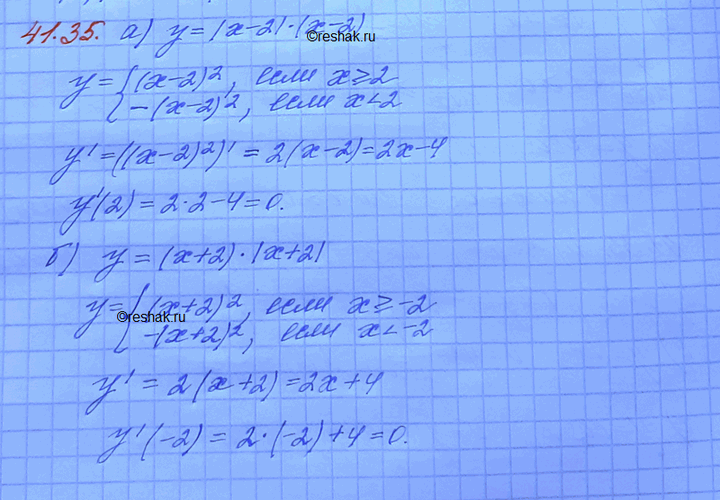 41.35. а) y = |x-2|·(x-2)
©reshak.ru
y = { (x-2)², если x ≥ 2
-(x-2)², если x < 2
y' = ((x-2)²)' = 2(x-2) = 2x-4
y'(2) = 2·2-4 = 0.
б) y = (x+2)·|x+2|
y = { (x+2)², если x ≥ -2
©reshak.ru
-(x+2)², если x < -2
y' = 2(x+2) = 2x+4
y'(-2) = 2·(-2)+4 = 0.